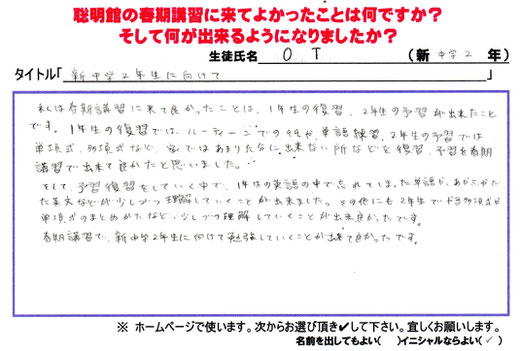 聡明館の春期講習に来てよかったことは何ですか？
そして何が出来るようになりましたか？
生徒氏名 O.T (新 中学2 年)
タイトル「新中学2年生に向けて」
私は春期講習に来て良かったことは、1年生の復習、2年生の予習が出来たこと
です。1年生の復習では、ルーティーンでの99や、単語練習、2年生の予習では
単項式、多項式など、家ではあまりたなに出来ない所などを復習、予習を春期
講習で出来て良かったと思いました。
そして、予習復習をしていく中で、1年生の英語の中で忘れてしまった単語や、あやふやだっ
た英文などが少しづつ理解していくことが出来ました。その他にも2年生でやる多項式や
単項式のまとめかたなど、少しづつ理解していくことが出来良かったです。
春期講習で、新中学2年生に向けて勉強していくことが出来て良かったです。
※ ホームページで使います。次からお選び頂き✔して下さい。宜しくお願いします。
名前を出してもよい( )イニシャルならよい(✓)